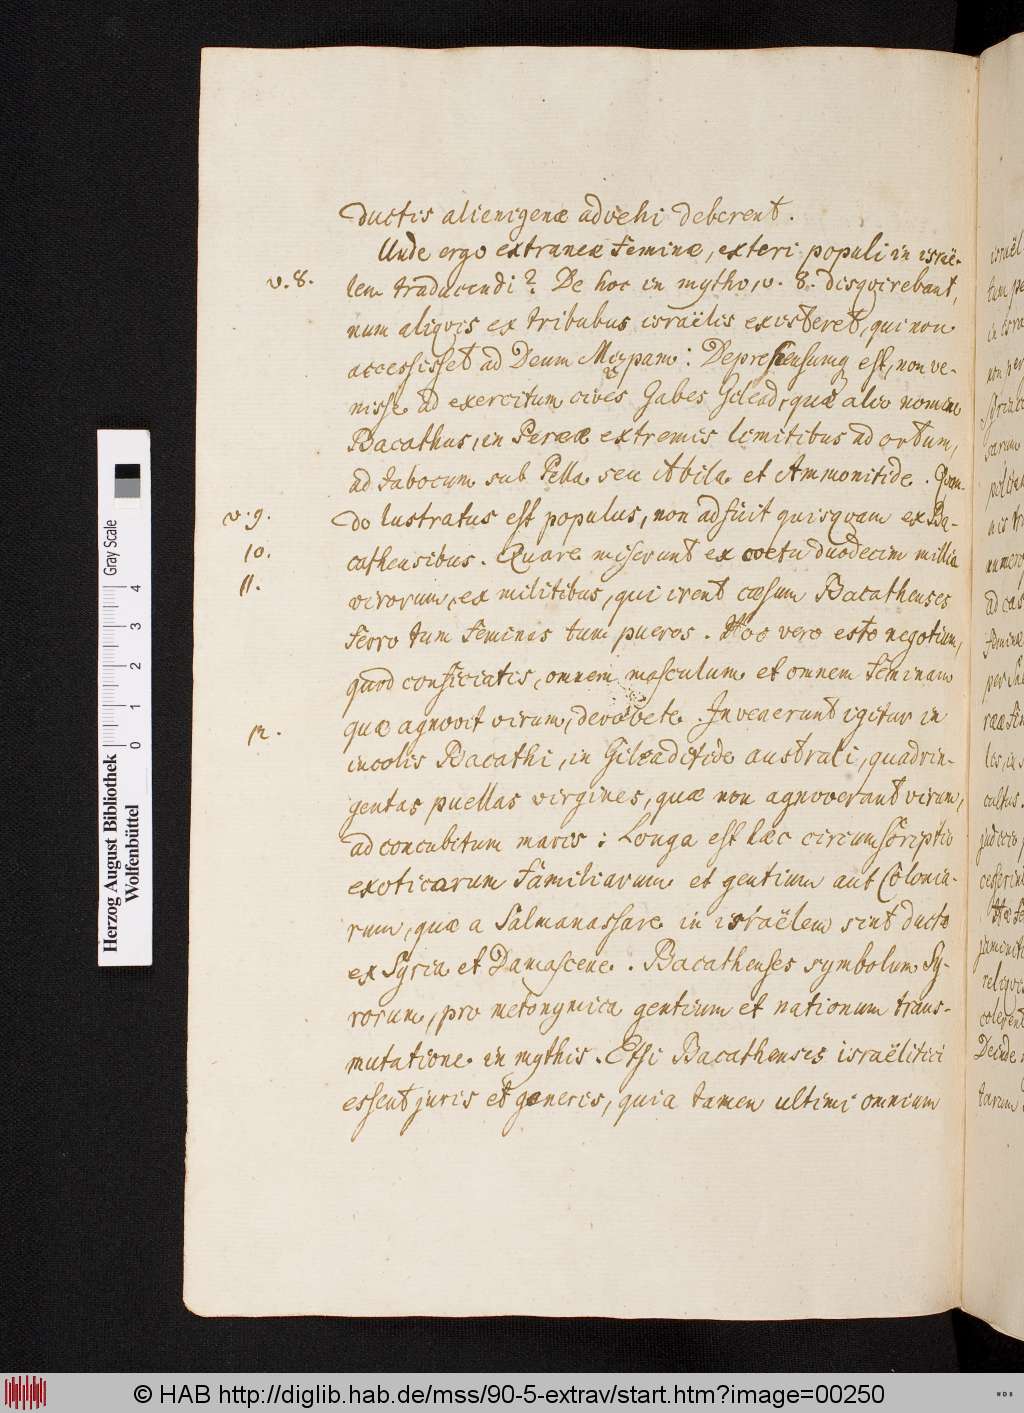 ductis alienigenæ advehi deberent.
Unde ergo extraneæ feminæ, exteri populi in israë-
v. 8. lem traducendi? De hoc in mytho, v. 8. disquirebant,
num aliquis ex tribubus israëlis existeret, qui non
accessisset ad Deum Mizpam: Deprehensumq est, non ve-
nisse ad exercitum cives Gabes Gilead, quæ alio nomine
Bacathus, in Peraeæ extremis limitibus ad ortum,
ad Jabocum sub Pella seu Abila et Ammonitide. Quan-
v. 9. do lustratus est populus, non adfuit quisquam ex Ba-
10. cathensibus. Quare miserunt ex coetu duodecim millia
11. virorum, ex militibus, qui irent cæsum Bacathenses
ferro tum feminas tum pueros. Hoc vero esto negotium,
quod conficiatis, omnem masculum et omnem feminam
quæ agnovit virum, devovete. Invenerunt igitur in
12. incolis Bacathi, in Gileaditide australi, quadrin-
gentas puellas virgines, quæ non agnoverant virum,
ad concubitum maris: Longa est hæc circumscriptio
exoticarum familiarum et gentium aut Colonia-
rum, quæ a Salmanassare in israëlem sint ductæ
ex Syria et Damascene. Bacathenses symbolum Sy-
rorum, pro metonymica gentium et nationum trans-
mutatione in mythis. Etsi Bacathenses israëlitici
essent juris et generis, quia tamen ultimi omnium
Herzog August Bibliothek
Wolfenbüttel
Gray Scale
0 1 2 3 4
© HAB http://diglib.hab.de/mss/90-5-extrav/start.htm?image=00250